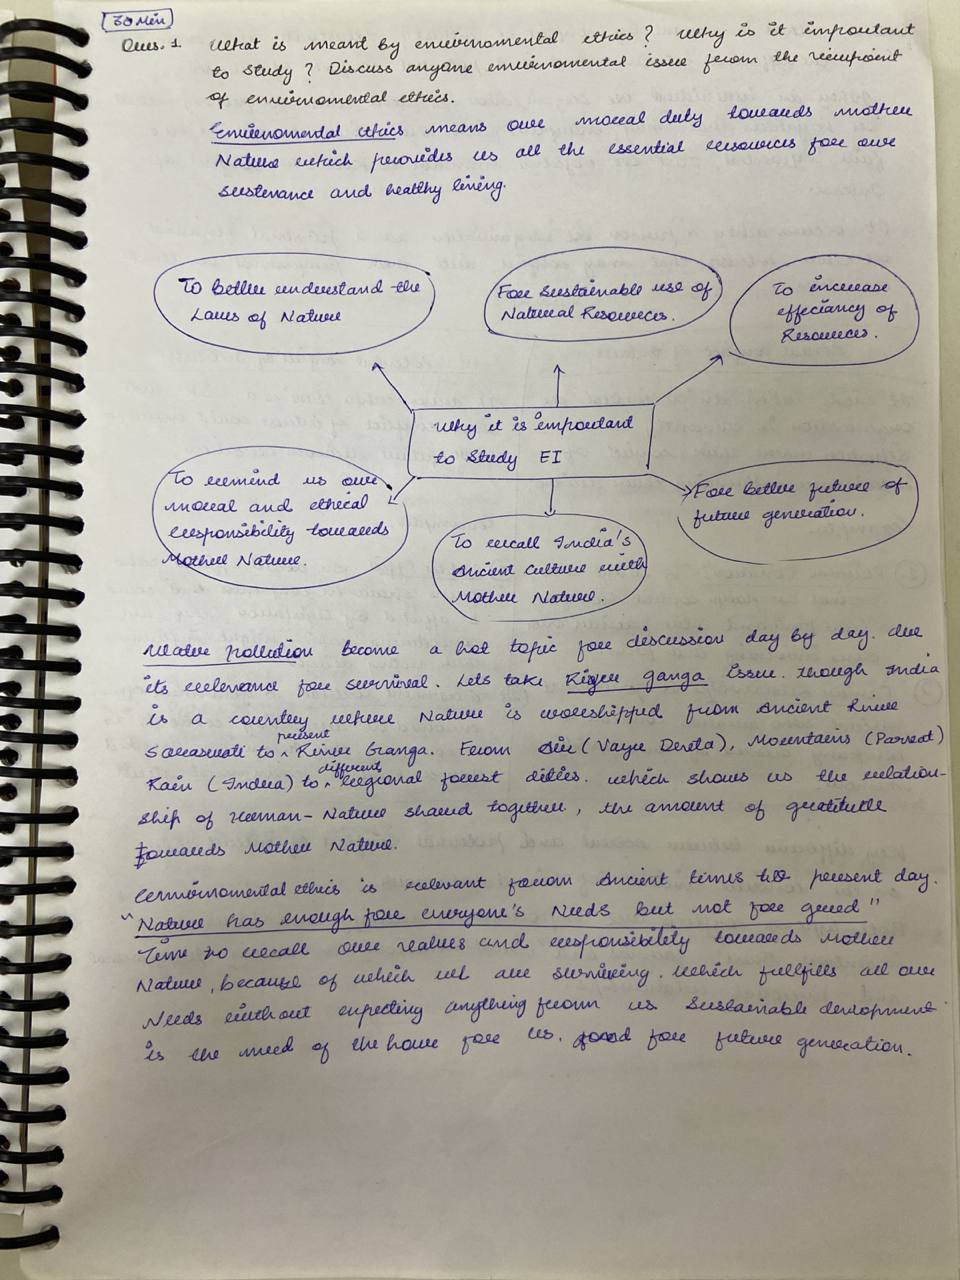 30 Min
Ques. 1 What is meant by envirnomental ethics? Why is it important
to study? Discuss anyone envirnomental issue from the viewpoint
of envirnomental ethics.
Envirnomental ethics means our moral duty towards mother
Nature which provides us all the essential resources for our
sustenance and healthy living.
To better understand the
Laws of Nature
For Sustainable use of
Natural Resources.
To increase
effeciancy of
Resources.
Why it is important
to Study EI
To remind us our
moral and ethical
responsibility towards
Mother Nature.
To recall India's
Ancient Culture with
Mother Nature.
For better future of
future generation.
Water pollution become a hot topic for discussion day by day. due
its relevance for survival. Lets take River ganga issue. though India
is a country where Nature is worshipped from Ancient River
Saraswati to present River Ganga. From Air (Vayu Devta), Mountains (Parvat)
Rain (Indra) to different regional forest dities. which shows us the relation-
ship of Human-Nature shared together, the amount of gratitude
towards Mother Nature.
Envirnomental ethics is relevant from Ancient times to present day.
"Nature has enough for everyone's Needs but not for greed"
Time to recall our values and responsibility towards Mother
Nature, because of which we are surviving. Which fullfills all our
Needs without expecting anything from us Sustainable development
is the need of the hour for us, good for future generation.